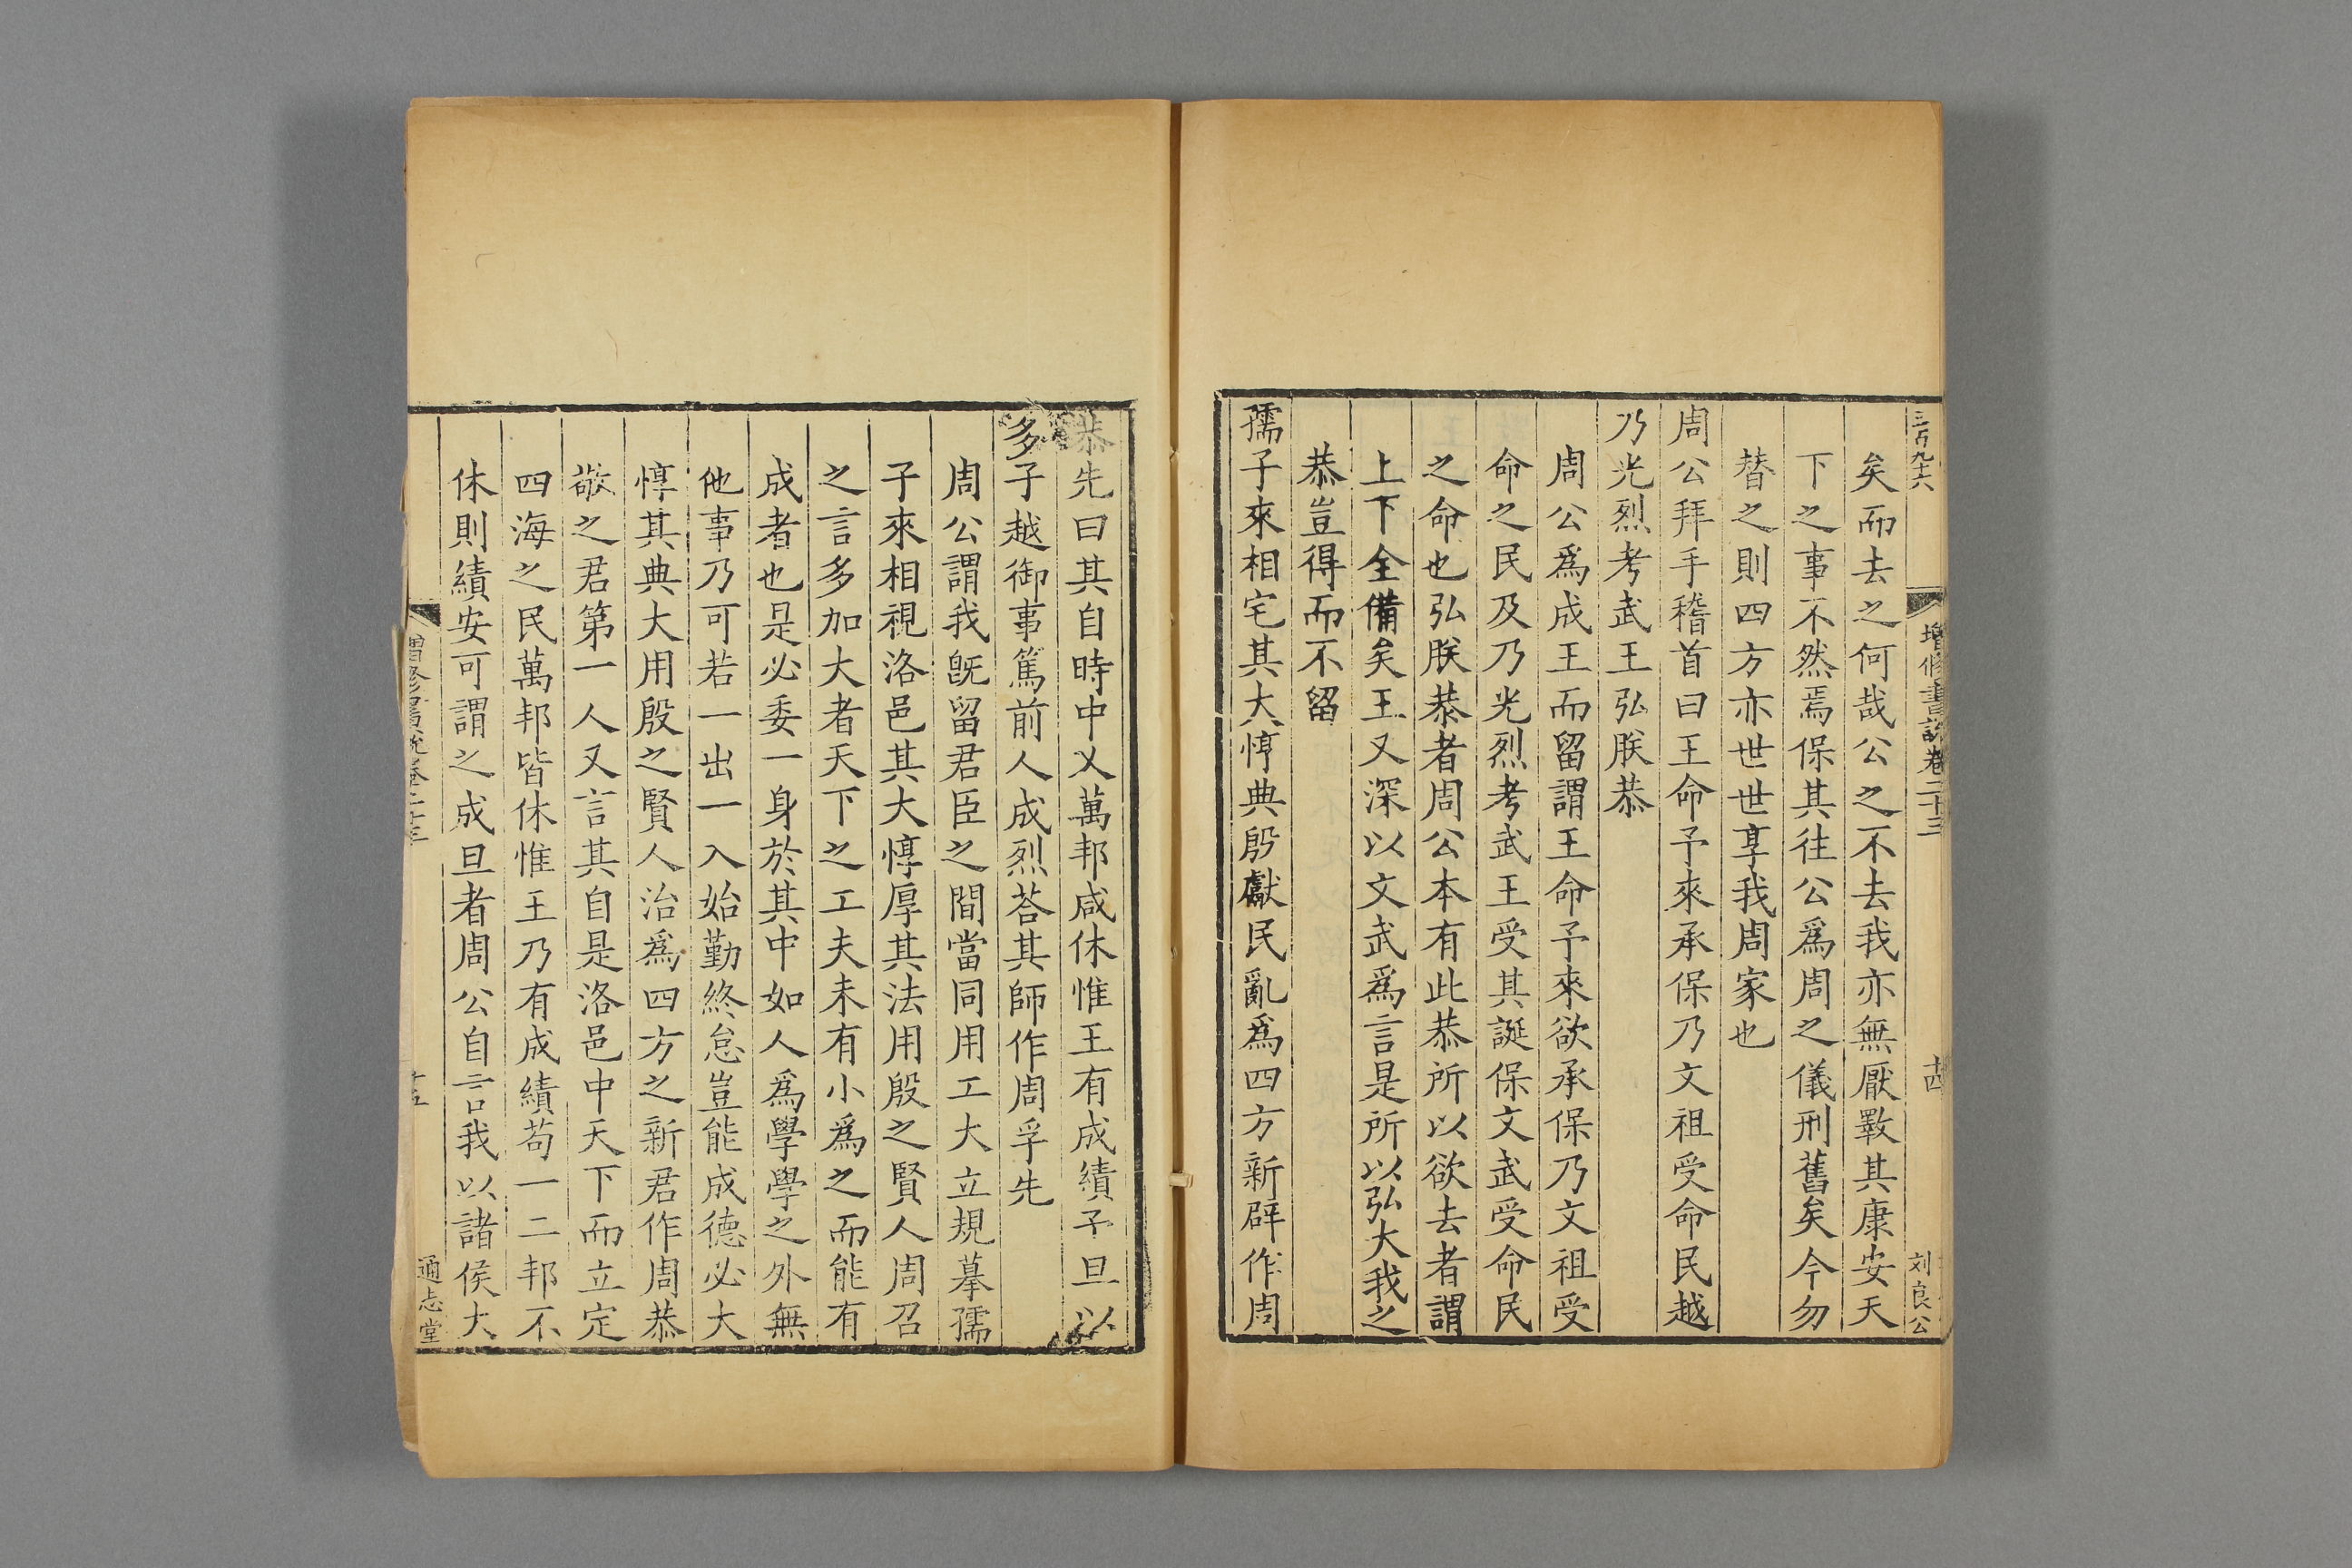 三百九十六
增修書說卷二十三
十四
刘良公
矣而去之何哉公之不去我亦無厭斁其康安天
下之事不然焉保其往公爲周之儀刑舊矣今勿
替之則四方亦世世享我周家也
周公拜手稽首曰王命予來承保乃文祖受命民越
乃光烈考武王弘朕恭
周公爲成王而留謂王命予來欲承保乃文祖受
命之民及乃光烈考武王受其誕保文武受命民
之命也弘朕恭者周公本有此恭所以欲去者謂
上下全備矣王又深以文武爲言是所以弘大我之
恭豈得而不留
孺子來相宅其大惇典殷獻民亂爲四方新辟作周
恭先曰其自時中乂萬邦咸休惟王有成績予旦以
多子越御事篤前人成烈荅其師作周孚先
周公謂我旣留君臣之間當同用工大立規摹孺
子來相視洛邑其大惇厚其法用殷之賢人周召
之言多加大者天下之工夫未有小爲之而能有
成者也是必委一身於其中如人爲學學之外無
他事乃可若一出一入始勤終怠豈能成德必大
惇其典大用殷之賢人治爲四方之新君作周恭
敬之君第一人又言其自是洛邑中天下而立定
四海之民萬邦皆休惟王乃有成績苟一二邦不
休則績安可謂之成旦者周公自言我以諸侯大
增修書說卷二十三
十五
通志堂